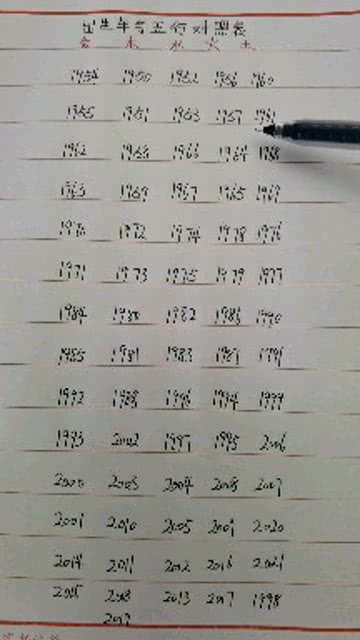 出生年与五行对照表
金 木 水 火 土
1954 1950 1952 1956 1960
1955 1951 1953 1957 1961
1962 1958 1966 1964 1968
1963 1959 1967 1965 1969
1970 1972 1974 1978 1976
1971 1973 1975 1979 1977
1984 1980 1982 1986 1990
1985 1981 1983 1987 1991
1992 1988 1996 1994 1999
1993 2002 1997 1995 2006
2000 2003 2004 2008 2007
2001 2010 2005 2009 2020
2014 2011 2012 2016 2021
2015 2013 2017 1998